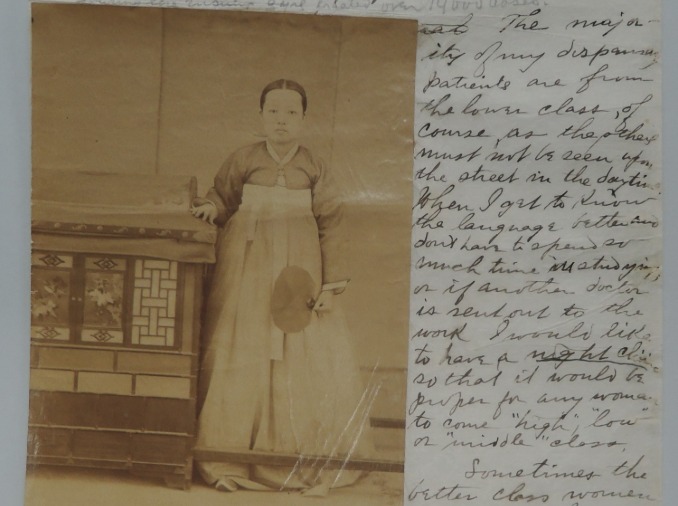 over 14000 cases.
The major-
ity of my dispensary
patients are from
the lower class, of
course, as the others
must not be seen upon
the street in the daytime
When I get to know
the language better and
don't have to spend so
much time in studying,
or if another doctor
is sent out to the
work I would like
to have a night
so that it would be
proper for any woman
to come "high", "low"
or "middle" class.
Sometimes the
better class women